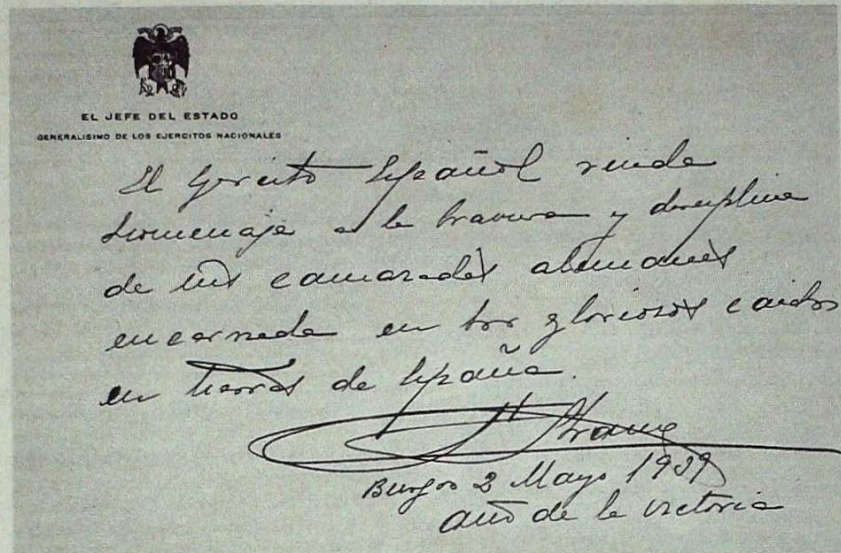 EL JEFE DEL ESTADO
GENERALISIMO DE LOS EJERCITOS NACIONALES
El Ejercito Español rinde
homenaje a la bravura y disciplina
de sus camaradas alemanes
encarnada en los gloriosos caidos
en tierras de España.
F Franco
Burgos 2 Mayo 1939
año de la victoria